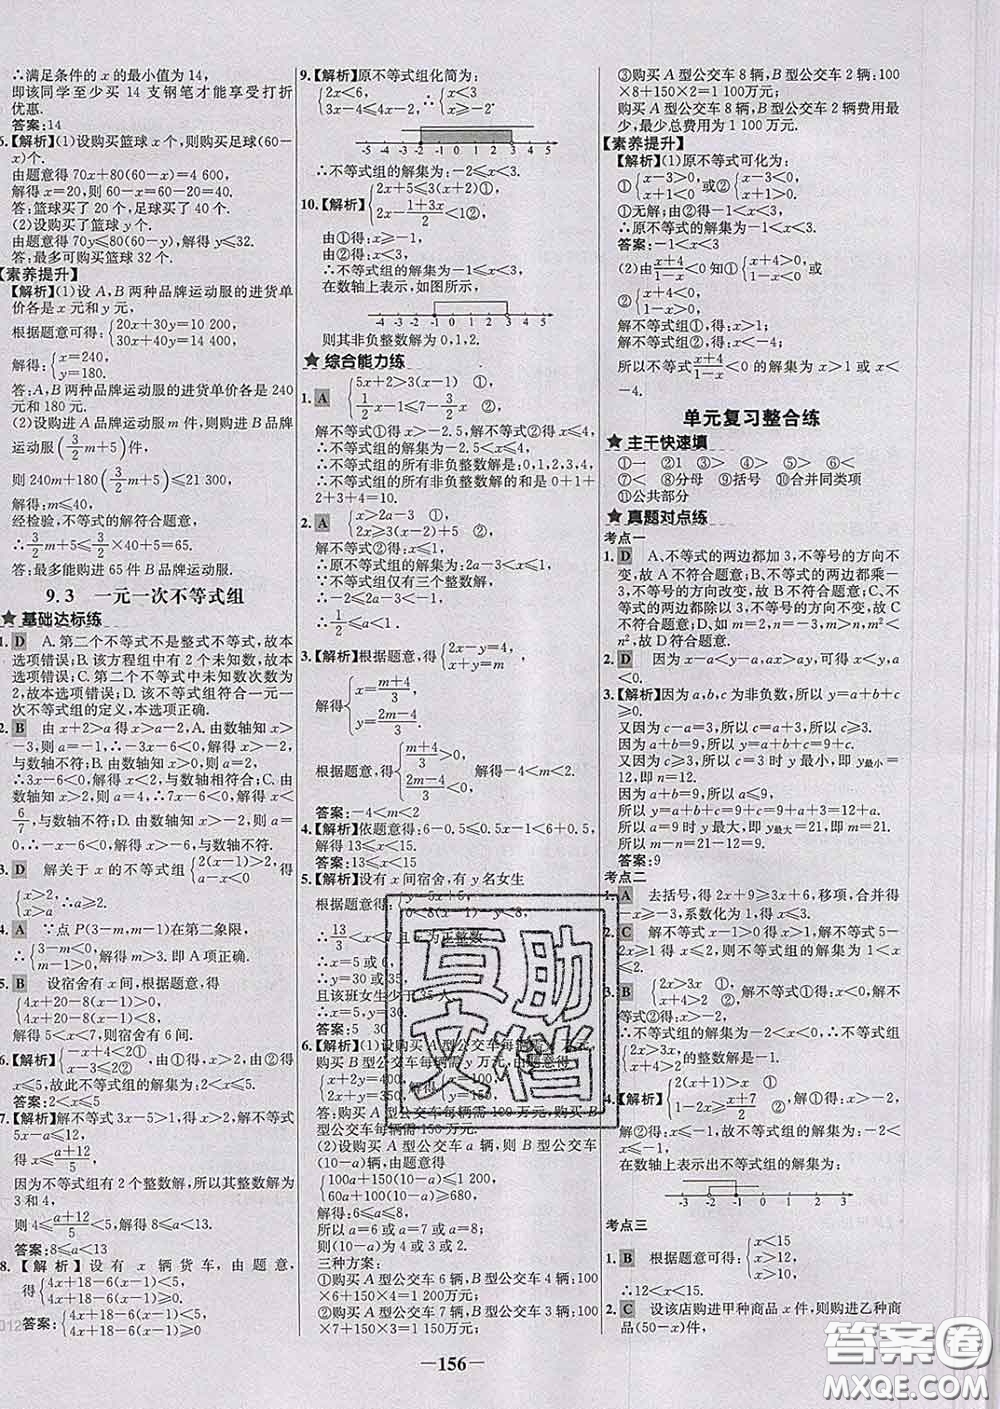 ∴满足条件的 x 的最小值为 14,
即该同学至少买 14 支钢笔才能享受打折
优惠.
答案:14
6.【解析】(1)设购买篮球 x 个,则购买足球(60-
x)个.
由题意得 70x+80(60-x)=4 600,
解得 x=20,则 60-x=60-20=40.
答:篮球买了 20 个,足球买了 40 个.
(2)设购买了篮球 y 个.
由题意得 70y≤80(60-y),解得 y≤32.
答:最多可购买篮球 32 个.
【素养提升】
【解析】(1)设 A,B 两种品牌运动服的进货单
价各是 x 元和 y 元,
根据题意可得:{20x+30y=10 200,
30x+40y=14 400,
解得:{x=240,
y=180.
答:A,B 两种品牌运动服的进货单价各是 240
元和 180 元.
(2)设购进 A 品牌运动服 m 件,则购进 B 品牌
运动服(3/2 m+5)件,
则 240m+180(3/2 m+5)≤21 300,
解得:m≤40,
经检验,不等式的解符合题意,
∴3/2 m+5≤3/2×40+5=65.
答:最多能购进 65 件 B 品牌运动服.
9.3 一元一次不等式组
★ 基础达标练
1. D A.第二个不等式不是整式不等式,故本
选项错误;B.该方程组中有 2 个未知数,故本
选项错误;C.第二个不等式中未知数次数为
2,故本选项错误;D.该不等式组符合一元一
次不等式组的定义,本选项正确.
2. B 由 x+2>a 得 x>a-2,A.由数轴知 x>
-3,则 a=-1,∴-3x-6<0,解得 x>-2,
与数轴不符;B.由数轴知 x>0,则 a=2,
∴3x-6<0,解得 x<2,与数轴相符合;C.由
数轴知 x>2,则 a=4,∴7x-6<0,解得 x<
6/7,与数轴不符;D.由数轴知 x>-2,则 a=
0,∴-x-6<0,解得 x>-6,与数轴不符.
3. D 解关于 x 的不等式组{2(x-1)>2,
a-x<0得
{x>2,
x>a∴a≥2.
4. A ∵点 P(3-m,m-1)在第二象限,
∴{3-m<0,
m-1>0,解得:m>3.即 A 项正确.
5. B 设宿舍有 x 间,根据题意,得
{4x+20-8(x-1)>0,
4x+20-8(x-1)<8,
解得 5<x<7,则宿舍有 6 间.
6.【解析】{-x+4<2①,
2x-5≤5②,由①得:x>2,由②得:
x≤5,故此不等式组的解集为:2<x≤5.
答案:2<x≤5
7.【解析】解不等式 3x-5>1,得:x>2,解不等式
5x-a≤12,
得 x≤(a+12)/5,
因为不等式组有 2 个整数解,所以其整数解为
3 和 4,
则 4≤(a+12)/5<5,解得:8≤a<13.
答案:8≤a<13
8.【解析】设有 x 辆货车,由题意,
得{4x+18-6(x-1)<5,
4x+18-6(x-1)≥0
答案:{4x+18-6(x-1)<5,
4x+18-6(x-1)≥0
9.【解析】原不等式组化简为:
{2x<6,
3x-4≤4x-2,∴{x<3
x≥-2
-5 -4 -3 -2 -1 0 1 2 3 4 5
∴不等式组的解集为:-2≤x<3.
10.【解析】{2x+5≤3(x+2)①,
2x-(1+3x)/2<1②,
由①得:x≥-1,
由②得:x<3,
∴不等式组的解集为-1≤x<3,
在数轴上表示,如图所示,
-4 -3 -2 -1 0 1 2 3 4 5
则其非负整数解为 0,1,2.
★ 综合能力练
1. A {5x+2>3(x-1) ①,
1/2 x-1≤7-3/2 x ②,
解不等式①得 x>-2.5,解不等式②得 x≤4,
∴不等式组的解集为:-2.5<x≤4,
∴不等式组的所有非负整数解是:0,1,2,3,4,
∴不等式组的所有非负整数解的和是 0+1+
2+3+4=10.
2. A {x>2a-3 ①,
2x≥3(x-2)+5 ②,
解不等式②得:x≤1,
∴原不等式组的解集为 2a-3<x≤1,
∵不等式组仅有三个整数解,
∴-2≤2a-3<-1,
∴1/2≤a<1.
3.【解析】根据题意,得{2x-y=4,
x+y=m,
解得{x=(m+4)/3,
y=(2m-4)/3,
根据题意,得{(m+4)/3>0,
(2m-4)/3<0,解得-4<m<2.
答案:-4<m<2
4.【解析】依题意得:6-0.5≤0.5x-1<6+0.5,
解得 13≤x<15.
答案:13≤x<15
5.【解析】设有 x 间宿舍,有 y 名女生
根据题意,得{y-5x=5,
0<8(x-1)-y<8,
∴13/3<x<7且
∴x=5 或 6,
∴y=30 或 35,
且该班女生少于 35 人,
∴x=5
答案:5 30
6.【解析】(1)设购买 A 型公交车每辆需 x 万元,
购买 B 型公交车每辆需 y 万元,由题意得
{x+2y=400,
2x+y=350,解得{x=100,
y=150.
答:购买 A 型公交车每辆需 100 万元,购买 B
型公交车每辆需 150 万元.
(2)设购买 A 型公交车 a 辆,则 B 型公交车
(10-a)辆,由题意得
{100a+150(10-a)≤1 200,
60a+100(10-a)≥680,
解得:6≤a≤8,
所以 a=6 或 a=7 或 a=8;
所以(10-a)为 4 或 3 或 2;
三种方案:
①购买 A 型公交车 6 辆,B 型公交车 4 辆:100
×6+150×4=1 200万元;
②购买 A 型公交车 7 辆,B 型公交车 3 辆:100
×7+150×3=1 150万元;
③购买 A 型公交车 8 辆,B 型公交车 2 辆:100
×8+150×2=1 100万元;
购买 A 型公交车 8 辆,B 型公交车 2 辆费用最
少,最少总费用为 1 100 万元.
【素养提升】
【解析】(1)原不等式可化为:
①{x-3>0,
x+1<0或②{x-3<0,
x+1>0.
由①无解;由②得-1<x<3,
答案:-1<x<3
(2)由(x+4)/(1-x)<0 知①{x+4>0,
1-x<0或
②{x+4<0,
1-x>0,
解不等式组①,得:x>1;
解不等式组②,得:x<-4;
所以不等式(x+4)/(1-x)<0 的解集为 x>1 或 x<
-4.
单元复习整合练
★ 主干快速填
①一 ②1 ③> ④> ⑤> ⑥<
⑦< ⑧分母 ⑨括号 ⑩合并同类项
⑪公共部分
★ 真题对点练
考点一
1. D A、不等式的两边都加 3,不等号的方向不
变,故 A 不符合题意;B、不等式的两边都乘-
3,不等号的方向改变,故 B 不符合题意;C、不
等式的两边都除以 3,不等号的方向不变,故 C
不符合题意;D、如 m=2,n=-3,m>n,m²<
n²,故 D 符合题意.
2. D 因为 x-a<y-a,ax>ay,可得 x<y,
a<0.
3.【解析】因为 a,b,c 为非负数,所以 y=a+b+c
≥0.
又因为 c-a=3,所以 c=a+3,所以 c≥3.
因为 a+b=9,所以 y=9+c,
又因为 c≥3,所以 c=3 时 y 最小,即 y最小
=12,即 n=12,
因为 a+b=9,所以 a≤9,
所以 y=a+b+c=9+c=9+a+3=12+a.
所以 a=9 时 y 最大,即 y最大=21,即 m=21,
所以 m-n=21-12=9.
答案:9
考点二
1. A 去括号,得 2x+9≥3x+6,移项,合并得
-x≥-3,系数化为 1,得 x≤3.
2. C 解不等式 x-1>0 得 x>1,解不等式 5-
2x≥1 得 x≤2,则不等式组的解集为 1<x
≤2.
3. A {2x>3x ①,
x+4>2 ②,解不等式①得:x<0,
解不等式②得:x>-2,
∴不等式组的解集为-2<x<0,∴不等式组
{2x>3x,
x+4>2的整数解是-1.
4.【解析】{2(x+1)>x ①,
1-2x≥(x+7)/2 ②.
解①得:x>-2,
解②得:x≤-1,故不等式组的解为:-2<x
≤-1,
在数轴上表示出不等式组的解集为:
-3 -2 -1 0 1 2 3
考点三
1. B 根据题意可得:{x<15
x>12,
x≥10
∴12<x<15.
2. C 设该店购进甲种商品 x 件,则购进乙种商
品(50-x)件,
互助
文档
—156—
答案圈
MXQE.COM